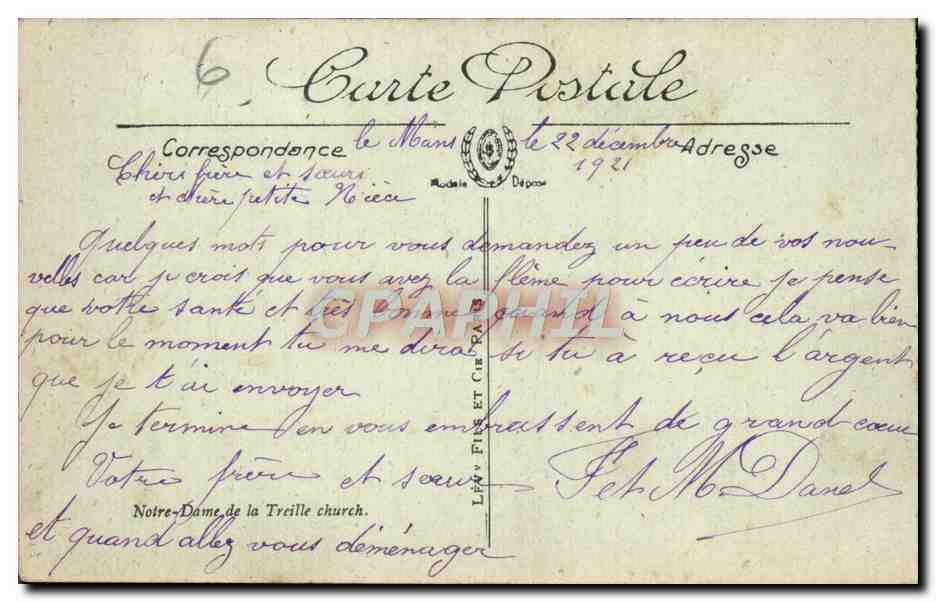 6
Carte Postale
Correspondance
Adresse
Modèle Déposé
le Mans le 22 décembre
1921
Chers frère et sœurs
et chère petite Nièce
Quelques mots pour vous demandez un peu de vos nou-
velles car je crois que vous avez la flême pour écrire je pense
que votre santé et très bonne quand à nous cela va bien
pour le moment tu me diras si tu à reçu l'argent
que je t'ai envoyer
Je termine en vous embrassent de grand cœur
Votre frère et sœur F et M Danel
Notre-Dame de la Treille church.
et quand allez vous déménager
LÉVY FILS ET CIE PARIS
CPAPHIL